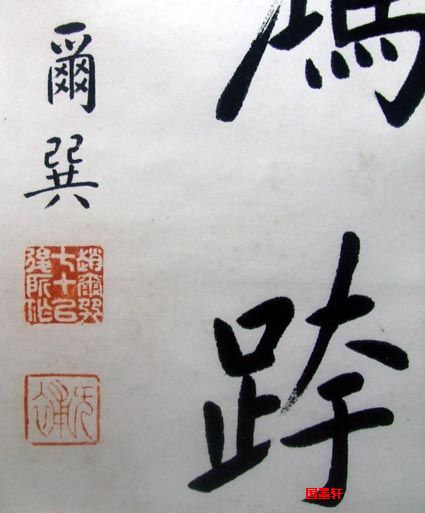 跨
爾巽
趙爾巽
七十㠯
後所作
国墨轩